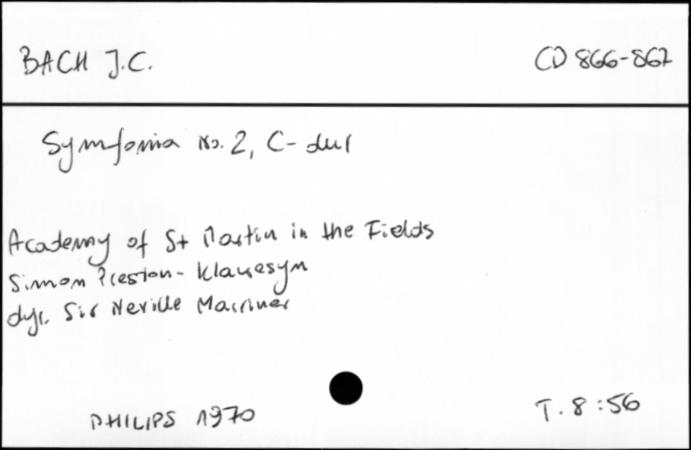 BACH J.C.
CD 866-867
Symfonia no. 2, C-dur
Academy of St Martin in the Fields
Simon Preston - klawesyn
dyr. Sir Neville Marriner
PHILIPS 1970
T. 8:56